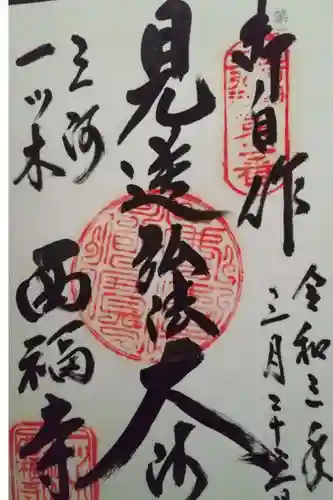 御自作
見送弘法大師
三河
一ツ木
西福寺
令和三年
三月二十三日